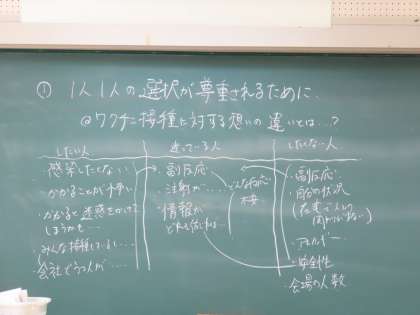 ① 1人1人の選択が尊重されるために.
@ワクチン接種に対する想いの違いとは…?
したい人
感染したくない
・かかることが怖い
・かかると迷惑をかけて
しまうかも…
・みんな接種している…
会社でうつ人が…
迷っている人
・副反応
・注射が……
・情報が
どんな反応
不安
したくない人
・副反応
・自分の状況
・アレルギー
・安全性
・会場の人数